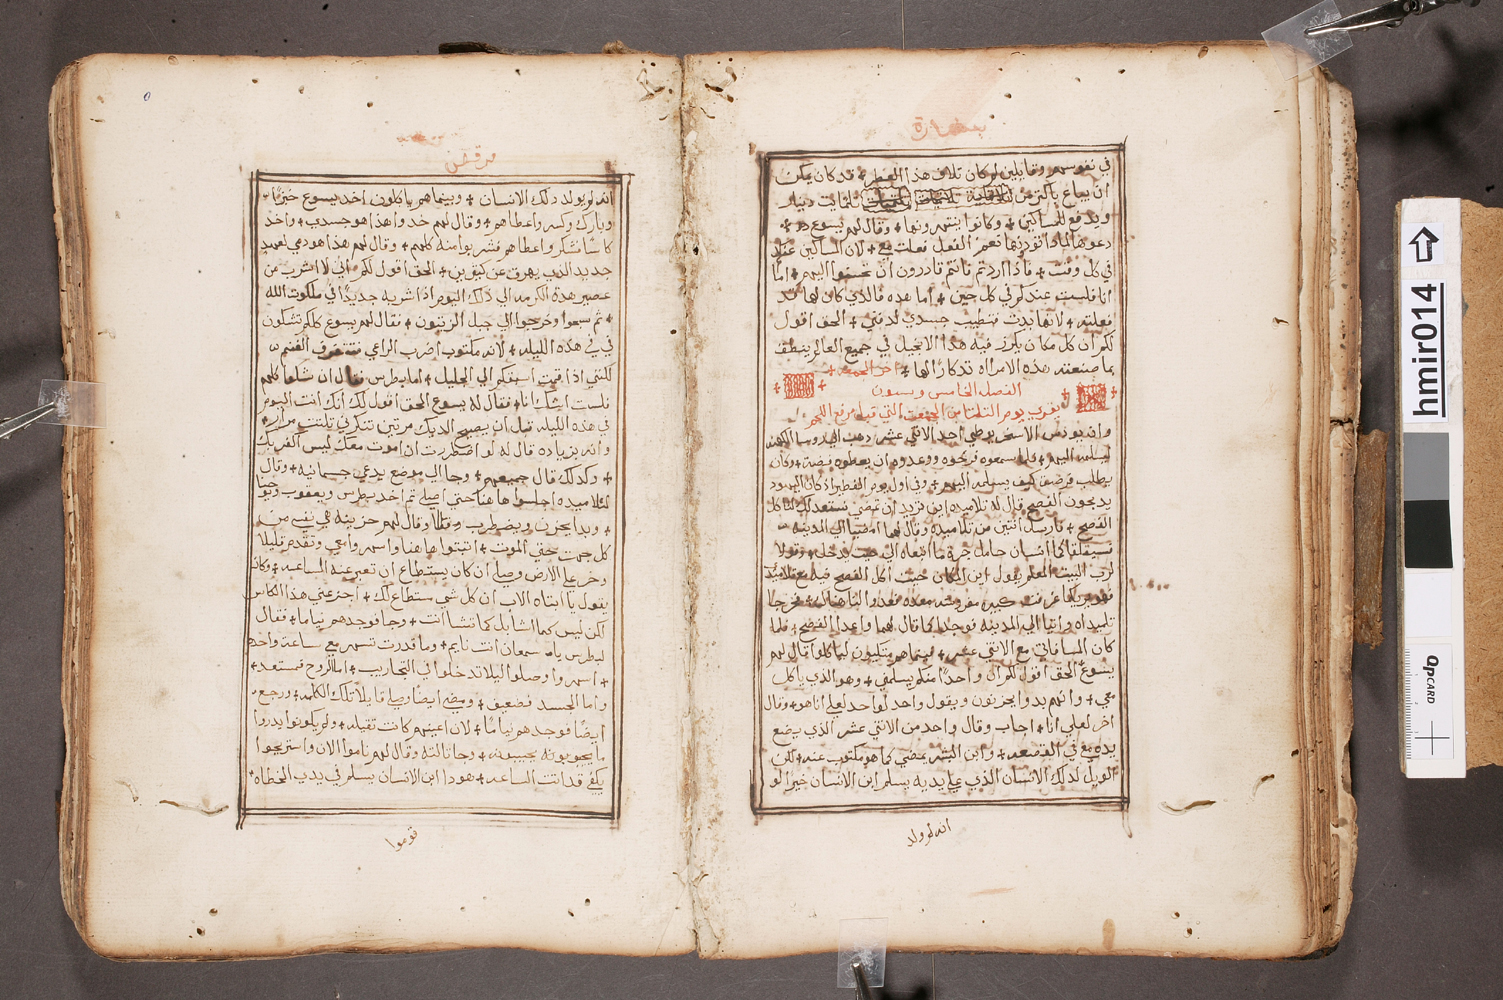 بشارة
في نفوسهم وقايلين لم كان تلاف هذا العطر + قد كان يمكن
ان يباع باكثر من ثلثمايت دينار
ويدفع للمساكين + وكانوا ينتهرونها + وقال لهم يسوع
دعوها لماذا تؤذونها نعم الفعل فعلت مع + لان المساكين عندكم
في كل وقت + فاذا اردتم فانتم قادرون ان تحسنوا اليهم + اما
انا فليست عندكم في كل حين + اما هذه فالذي كان لها قد
فعلته + لانها بدت فتطيب جسدي لدفني + الحق اقول
لكم ان كل مكان يكرز فيه هذا الانجيل في جميع العالم ينطق
بما صنعته هذه الامراة تذكارًا لها + اخر الجمعة +
الفصل الخامس وستون
يقرى يوم الثلثا من الجمعة التي قبل مرفع اللحم
وان يودس الاسخريوطي احد الاثني عشر ذهب الى روسا الكهنه
ليسلمه اليهم + فلما سمعوه فرحوه ووعدوه ان يعطوه فضة + وكان
يطلب فرصه كيف يسلمه اليهم + وفي اول يوم الفطير اذ كان اليهود
يذبحون الفصح قال له تلاميذه اين تريد ان نمضي نستعد لك لتاكل
الفصح + فارسل اثنين من تلاميذه وقال لهما امضيا الى المدينه
فسيلقاكما انسان حامل جرة ما اتبعاه الى حيث يدخل + وقولا
لرب البيت المعلم يقول اين المكان حيث اكل الفصح فيه مع تلاميذي
فهو يريكما غرفه كبيره مفروشه معده فعدوا لنا هناك + فخرجا
تلميذاه واتيا الى المدينه فوجدا كما قال لهما واعدا الفصح + فلما
كان المسا فاتى مع الاثني عشر + فبينما هم متكيون لياكلوا قال لهم
يسوع الحق اقول لكم ان واحدًا منكم يسلمني + وهو الذي ياكل
معي + وانهم بدوا يحزنون ويقول واحد لواحد لعلي انا هو + وقال
اخر لعلي انا + اجاب وقال واحد من الاثني عشر الذي يضع
يده مع في القصعه + وابن البشر يمضي كما هو مكتوب عنه + لكن
الويل لذلك الانسان الذي على يديه يسلم ابن الانسان خيرا لو
انه لم يولد
مرقس
انه لم يولد ذلك الانسان + وبينما هم ياكلون اخذ يسوع خبزًا
وبارك وكسر واعطاهم + وقال لهم خذوا هذا هو جسدي + واخذ
كاسًا فشكر واعطاهم فشربوا منه كلهم + وقال لهم هذا هو دمي لعهد
جديد الذي يهرق عن كثيرين + الحق اقول لكم اني لا اشرب من
عصير هذه الكرمه الى ذلك اليوم اذا شربه جديدًا في ملكوت الله
+ ثم سبحوا وخرجوا الى جبل الزيتون + فقال لهم يسوع كلكم تشكون
في في هذه الليله + لانه مكتوب اضرب الراعي فتتفرق الغنم
لكنني اذا قمت اسبقكم الى الجليل + اما بطرس فقال ان شكوا كلهم
فلست اشك انا + فقال له يسوع الحق اقول لك انك انت اليوم
في هذه الليله قبل ان يصيح الديك مرتين تنكرني ثلثت مرار +
وانه بزياده قال له لو اضطررت ان اموت معك ليس انكريك
+ وكذلك قال جميعهم + وجا الى موضع يدعى جسمانيه + وقال
لتلاميذه اجلسوا هاهنا حتى اصلي ثم اخذ بطرس ويعقوب ويوحنا
+ وبدا يحزن ويضطرب وقال لهم حزينه هي نفسي من
كل جهت حتى الموت + اثبتوا هاهنا واسهروا معي وتقدم قليلا
وخر على الارض وصلى ان كان يستطاع ان تعبر عنه الساعه + وكان
يقول يا ابتاه الاب ان كل شي مستطاع لك + اجز عني هذا الكاس
لكن ليس كما انا اشا بل كما تشا انت + وجا فوجدهم نياما + فقال
لبطرس يا سمعان انت نايم + وما قدرت تسهر مع ساعة واحده
+ اسهروا وصلوا ليلا تدخلوا في التجاريب + اما الروح فمستعد +
واما الجسد فضعيف + ومضى ايضًا وصلى قايلا تلك الكلمه + ورجع
ايضًا فوجدهم نيامًا + لان اعينهم كانت ثقيله + ولم يكونوا يدروا
ما يجيبونه + وجا ثالثه وقال لهم ناموا الان واستريحوا
يكفي قد اتت الساعه + هوذا ابن الانسان يسلم في يدي الخطاه +
قوموا
hmir014
QPcard